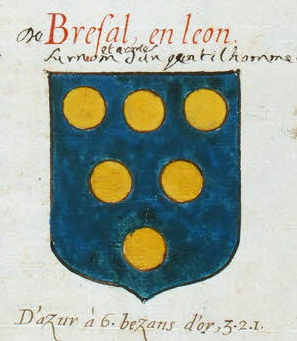 De Bresal, en leon.
et armes
surnom d'un gentilhomme
D'azur à 6. bezans d'or, 3.2.1.